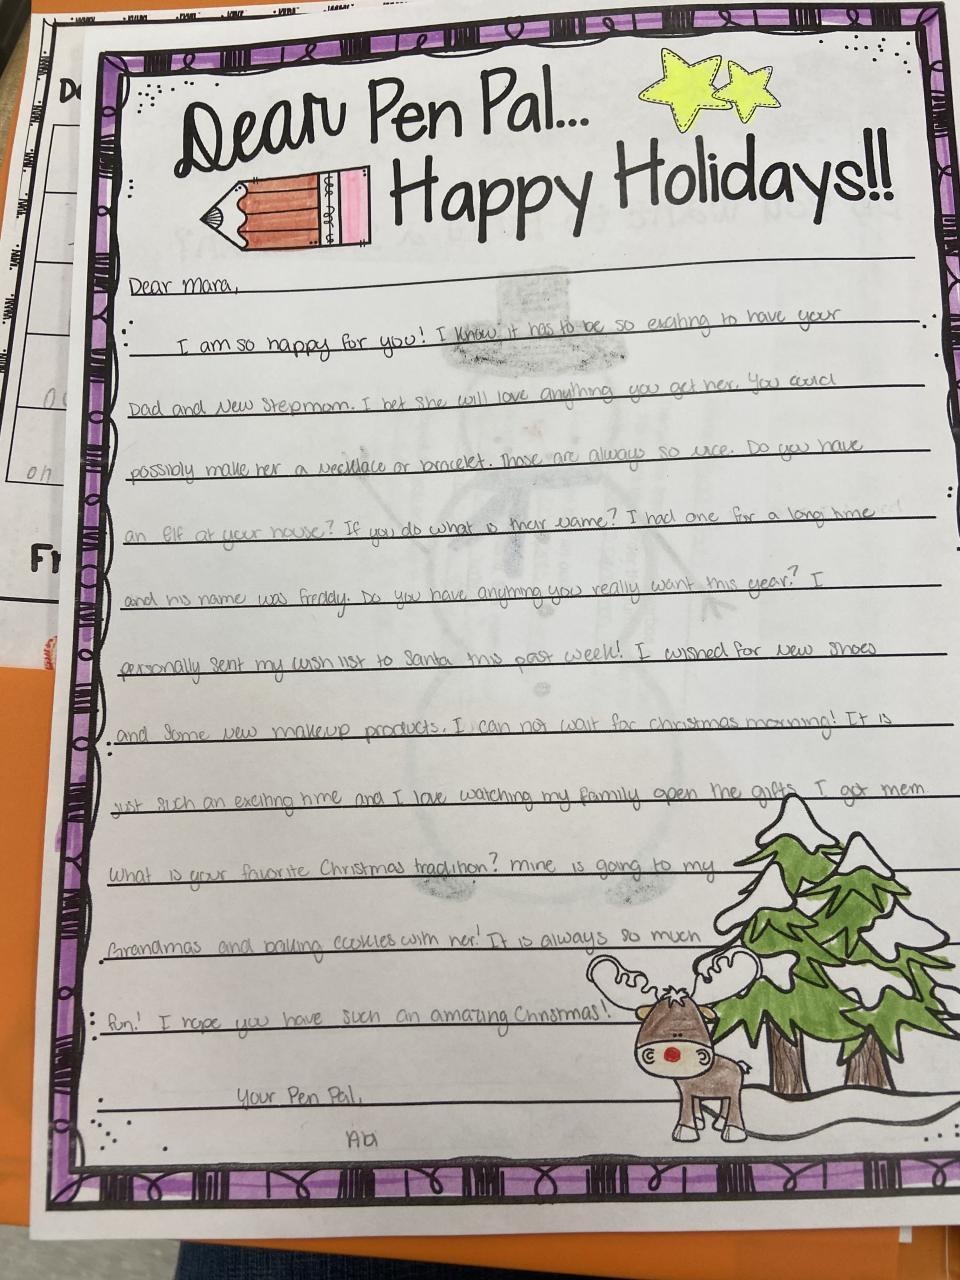 Dear Pen Pal...
Happy Holidays!!
Dear Mara,
I am so happy for you! I know it has to be so exciting to have your
Dad and New Stepmom. I bet she will love anything you get her. You could
possibly make her a necklace or bracelet. Those are always so nice. Do you have
an Elf at your house? If you do what is their name? I had one for a long time
and his name was freddy. Do you have anything you really want this year? I
personally sent my wish list to Santa this past week! I wished for new shoes
and some new makeup products. I can not wait for christmas morning! It is
just such an exciting time and I love watching my family open the gifts I got them
What is your favorite Christmas tradition? mine is going to my
Grandmas and baking cookies with her! It is always so much
fun! I hope you have such an amazing Christmas!
Your Pen Pal,
Abi